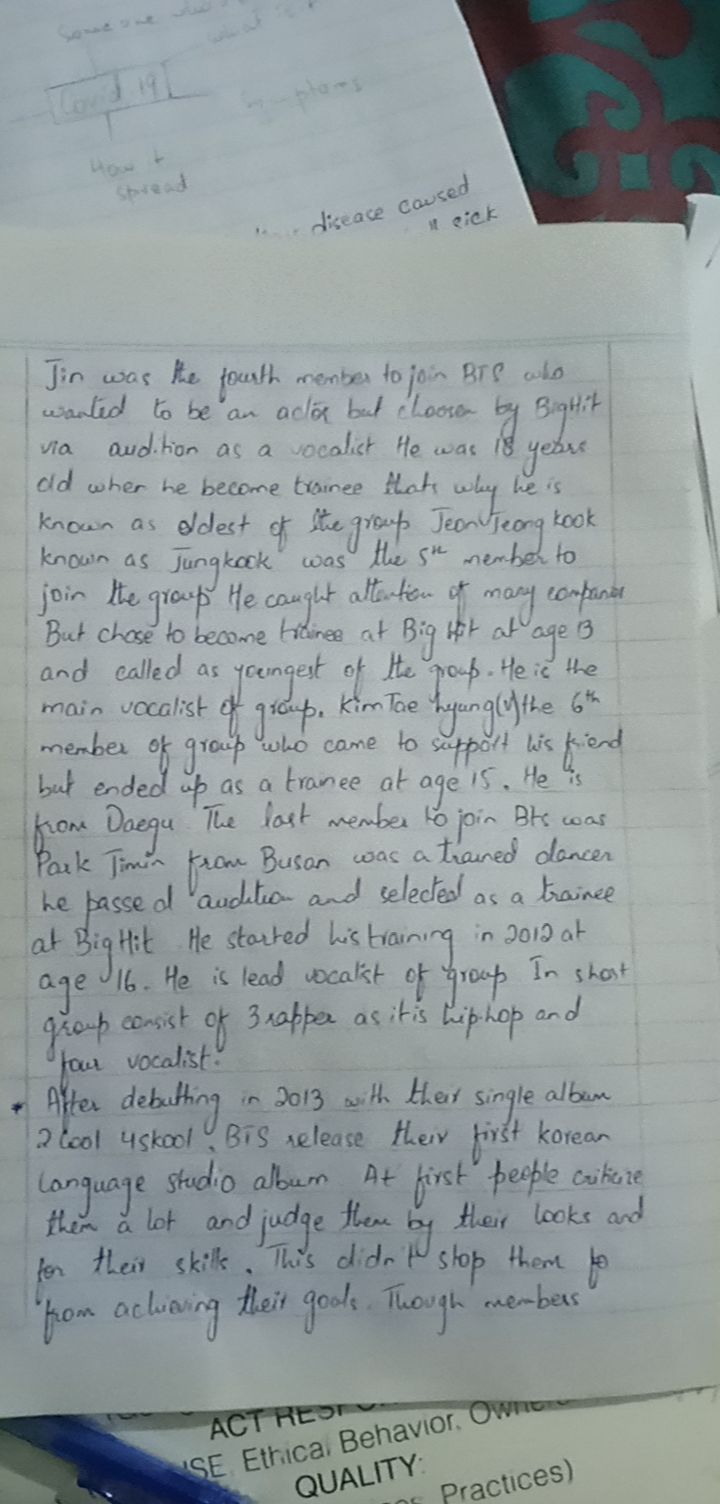 Some one
what is
Covid 19
Symptoms
How it
spread
disease caused
sick
Jin was the fourth member to join BTS who
wanted to be an actor but choosen by BigHit
via audition as a vocalist He was 18 years
old when he become trainee thats why he is
known as oldest of the group Jeon Jeong kook
known as Jungkook was the 5th member to
join the group He caught attention of many companies
But chose to become trainee at Big Hit at age 13
and called as youngest of the group. He is the
main vocalist of group. Kim Tae hyung(v) the 6th
member of group who came to support his friend
but ended up as a trainee at age 15. He is
from Daegu The last member to join Bts was
Park Jimin from Busan was a trained dancer
he passed audition and selected as a trainee
at BigHit He started his training in 2012 at
age 16. He is lead vocalist of group In short
group consist of 3 rapper as it is hiphop and
four vocalist.
* After debutting in 2013 with their single album
2 Cool 4 skool, BTS release their first korean
language studio album At first people criticize
them a lot and judge them by their looks and
for their skills. This didn't stop them fo
from achieving their goals. Though members
ACT
SE Ethical Behavior,
QUALITY:
Practices)